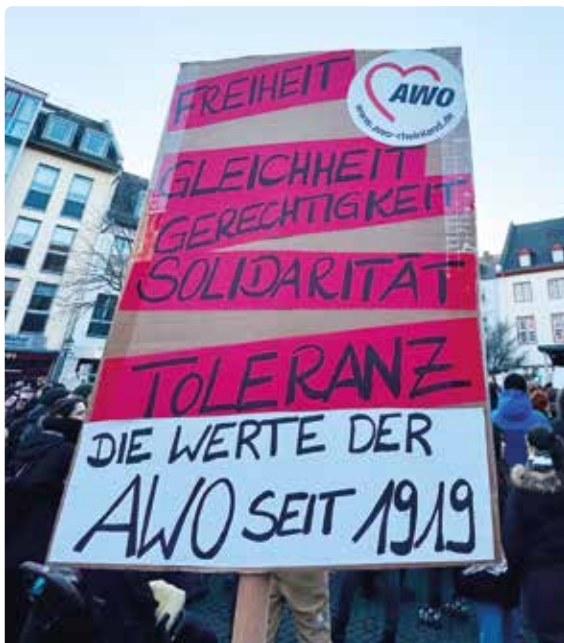 FREIHEIT
AWO
www.awo-rheinland.de
GLEICHHEIT
GERECHTIGKEIT
SOLIDARITÄT
TOLERANZ
DIE WERTE DER
AWO SEIT 1919